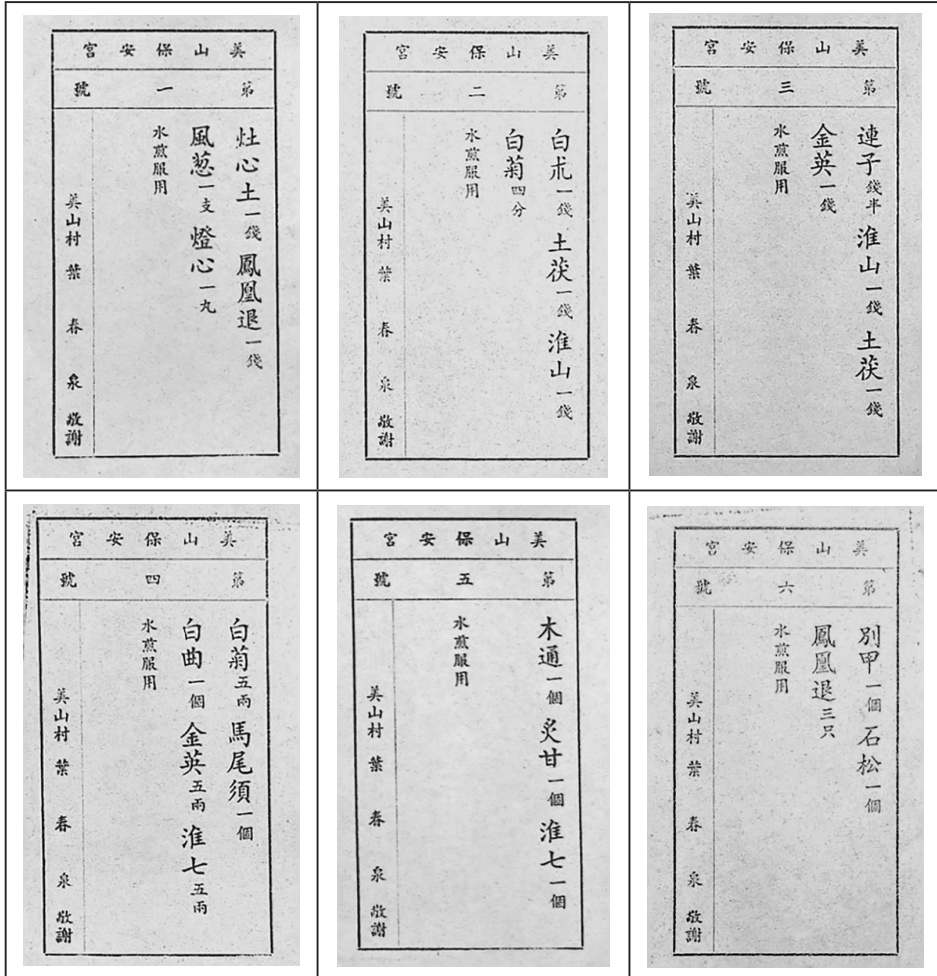 美山保安宮
第一號
灶心土一錢 鳳凰退一錢
風葱一支 燈心一丸
水煎服用
美山村 葉春泉 敬謝
美山保安宮
第二號
白朮一錢 土茯一錢 淮山一錢
白菊四分
水煎服用
美山村 葉春泉 敬謝
美山保安宮
第三號
連子錢半 淮山一錢 土茯一錢
金英一錢
水煎服用
美山村 葉春泉 敬謝
美山保安宮
第四號
白菊五兩 馬尾須一個
白曲一個 金英五兩 淮七五兩
水煎服用
美山村 葉春泉 敬謝
美山保安宮
第五號
木通一個 炙甘一個 淮七一個
水煎服用
美山村 葉春泉 敬謝
美山保安宮
第六號
別甲一個 石松一個
鳳凰退三只
水煎服用
美山村 葉春泉 敬謝